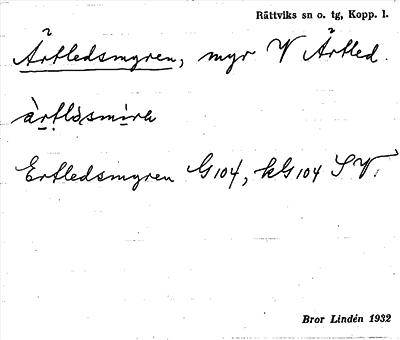 Rättviks sn o. tg, Kopp. l.
Ärtledsmyren, myr V Ärtled.
Ertledsmyren G104, kG104 S.V.
Bror Lindén 1932